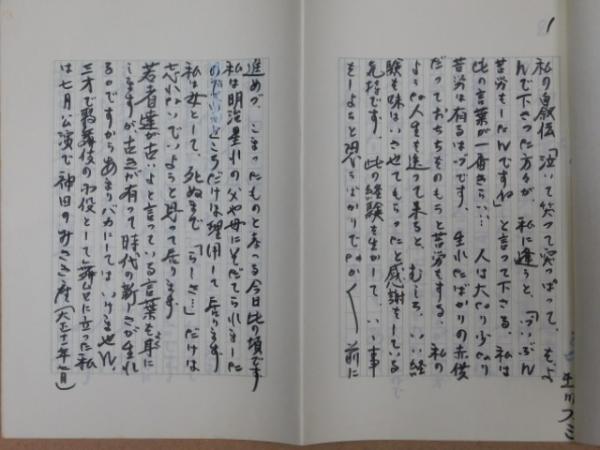 1
私の自叙伝「泣いて笑って突っぱって」をよ
んで下さった方々が、私に逢うと、「ずいぶん
苦労をしたんですね」と言って下さる。私は
此の言葉が一番きらい… 人は大なり少なり
苦労は有るはづです、生れたばかりの赤ん坊
だっておちちをのもうと苦労をする、私の
よう な人生を送って来ると、むしろ、いい経
験を味はいさせてもらったと感謝をしている
気持です。此の経験を生かして、いい事
をしようと思うばかりでなく 前に
進めづ、こまったものと
る今日此の頃です
私は明治生れの父や母にそだてられました
ところだけは理用して居ります
私は女として、死ぬまで「らしさ…」だけは
忘れないでいようと思って居ります
若者達が古いよと言っている言葉も耳に
しますが、古きが有って時代の新しさが生れ
るのですからあまりバカにしてはいけません、
三才で歌舞伎の子役として舞台に立った私
は七月公演で神田のみさき座(大正十一年七月)